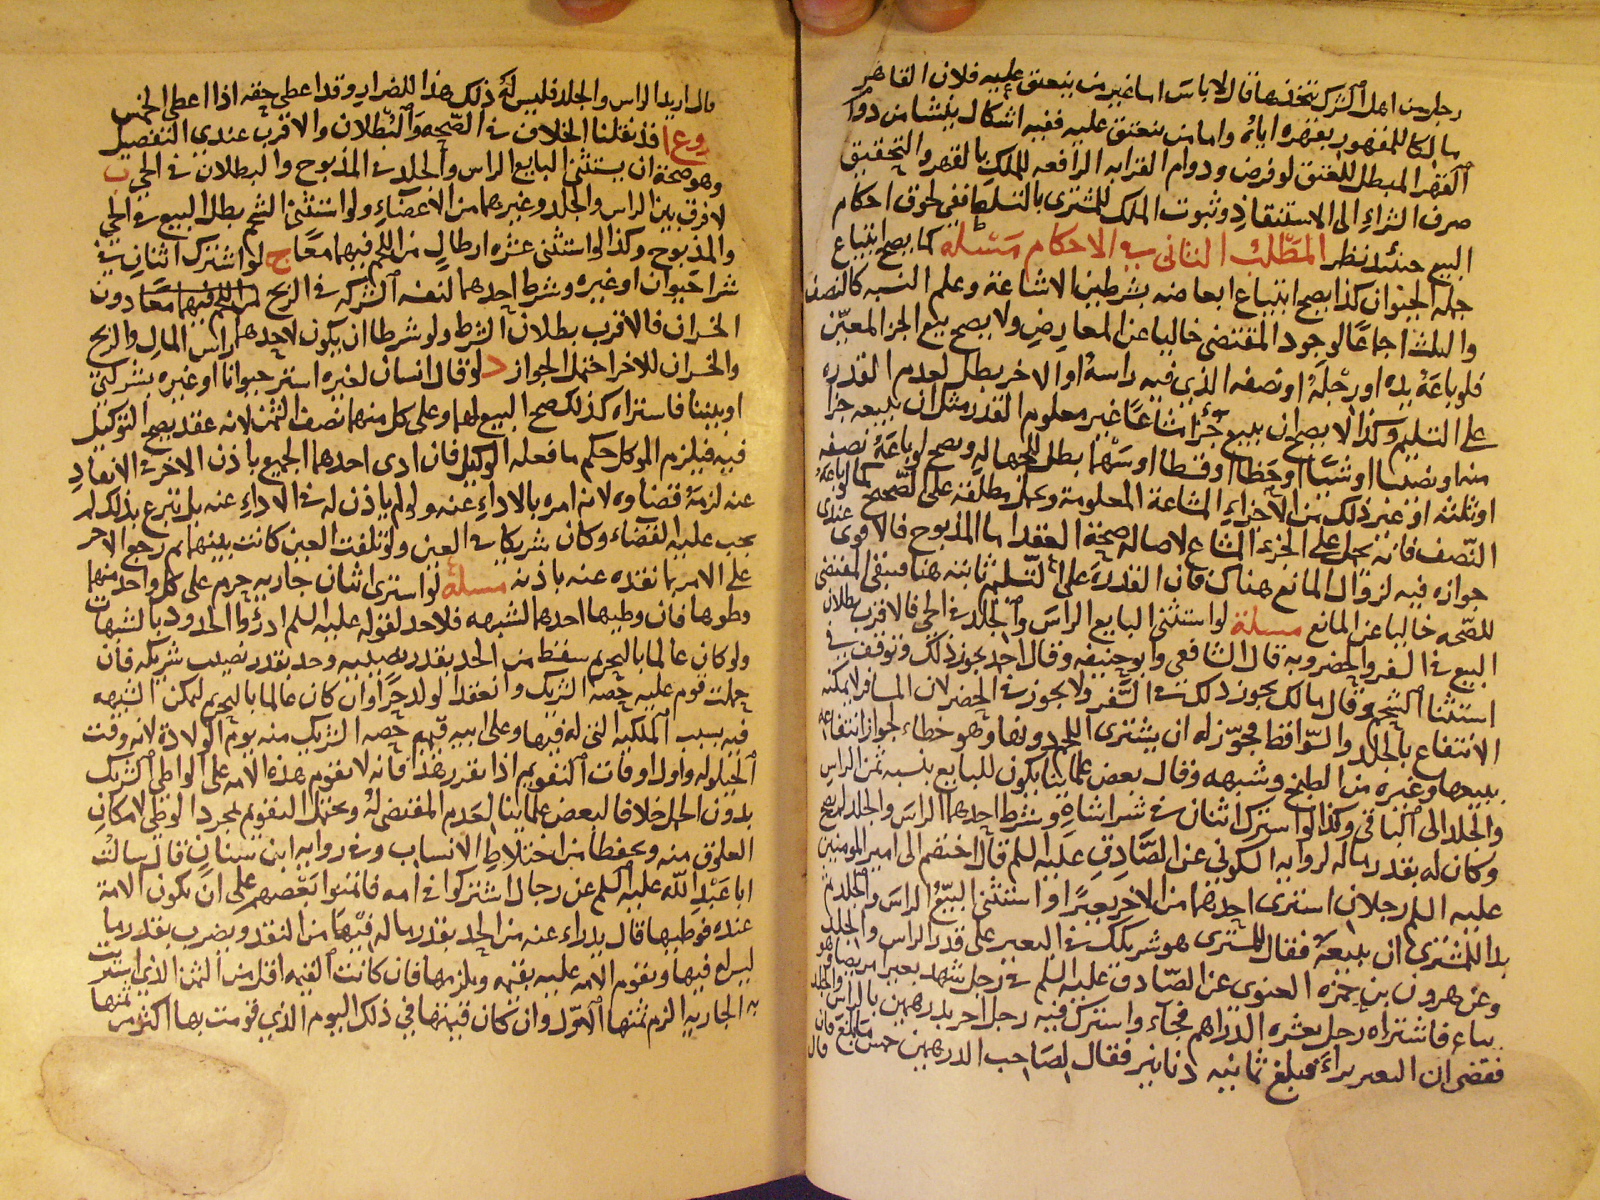 رجل من اهل الشرك يتخذها قال لا باس اما غير من ينعتق عليه فلان القاهر
مالكا للمقهور بقهره اياه واما من ينعتق عليه ففيه اشكال ينشا من دوام
القهر المبطل للعتق لو فرض ودوام القرابه الرافعه للملك بالقهر والتحقيق
صرف الشراء الى الاستنقاذ وثبوت الملك للمشترى بالتسلط ففي لحوق احكام
البيع حينئذ نظر المطلب الثانى في الاحكام مسئله كما يصح ابتياع
جمله الحيوان كذا يصح ابتياع ابعاضه بشرطين الاشاعة وعلم النسبه كالنصف
والثلث اجماعا لوجود المقتضى خاليا عن المعارض ولا يصح بيع الجزء المعين
فلو باعه يده او رجله او نصفه الذي فيه راسه او الاخر بطل لعدم القدره
على التسليم وكذا لا يصح ان يبيع جزءا مشاعا غير معلوم القدر مثل ان يبيعه جزأ
منه او نصيبا او شيئا او حظا او قسطا او سهما بطل للجهاله ويصح لو باعه نصفه
او ثلثه او غير ذلك من الاجزاء المشاعة المعلومة ويحمل مطلقه على الصحيح كما لو باعه
النصف فانه يحمل على الجزء المشاع لاصاله صحة العقد اما المذبوح فالاقوى عندي
جوازه فيه لزوال المانع هناك فان القدرة على التسليم ثابته هنا فيبقى المقتضى
للصحه خاليا عن المانع مسئلة لو استثنى البايع الراس والجلد في الحي فالاقرب بطلان
البيع في السفر والحضر وبه قال الشافعي وابو حنيفه وقال احمد يجوز ذلك وتوقف في
استثنا الشحم وقال مالك يجوز ذلك في السفر ولا يجوز في الحضر لان المسافر لا يمكنه
الانتفاع بالجلد والسواقط فجوز له ان يشترى اللحم دونها وهو خطاء لجواز انتفاعه
ببيعها وغيره من الطبخ وشبهه وقال بعض علمائنا يكون للبايع بنسبه ثمن الراس
والجلد الى الباقي وكذا لو اشترك اثنان في شرا شاة وشرط احدهما الراس والجلد لم يصح
وكان له بقدر ماله لروايه السكونى عن الصادق عليه السلم قال اختصم الى امير المومنين
عليه السلم رجلان اشترى احدهما من الاخر بعيرا واستثنى البيع الراس والجلد ثم
بدا للمشترى ان يبيعه فقال للمشترى هو شريكك في البعير على قدر الراس والجلد
وعن هرون بن حمزه الغنوى عن الصادق عليه السلم في رجل شهد بعيرا مريضا وهو
يباع فاشتراه رجل بعشره الدراهم فجاء واشترك فيه رجل اخر بدرهمين بالراس والجلد
فقضى ان البعير براء فبلغ ثمانيه دنانير فقال لصاحب الدرهمين خمس ما بلغ فان قال
قال اريد الراس والجلد فليس له ذلك هذا الضرار وقد اعطى حقه اذا اعطى الخمس
فروع ا قد نقلنا الخلاف في الصحه والبطلان والاقرب عندي التفصيل
وهو صحة ان يستثنى البايع الراس والجلد في المذبوح والبطلان في الحي ب
لا فرق بين الراس والجلد وغيرهما من الاعضاء ولو استثنى الشحم بطل البيع في الحي
والمذبوح وكذا لو استثنى عشره ارطال من اللحم فيهما معا ج لو اشترك اثنان في
شرا حيوان او غيره وشرط احدهما لنفسه الشركه في الربح من اللحم فيهما معا دون
الخسران فالاقرب بطلان الشرط ولو شرطا ان يكون لاحدهما راس المال والربح
والخسران للاخر احتمل الجواز د لو قال انسان لغيره اشتر حيوانا او غيره بشركتي
او بيننا فاشتراه كذلك صح البيع لهما وعلى كل منهما نصف الثمن لانه عقد يصح التوكيل
فيه فيلزم الموكل حكم ما فعله الوكيل فان ادى احدهما الجميع باذن الاخر في الانقاد
عنه لزمه قضاوه لانه امره بالاداء عنه ولو لم ياذن له في الاداء عنه بل تبرع بذلك لم
يجب عليه القضاء وكان شريكا في العين ولو تلفت العين كانت بينهما ثم رجع الاخر
على الامر بما نقده عنه باذنه مسئلة لو اشترى اثنان جاريه حرم على كل واحد منهما
وطوها فان وطيها احدهما لشبهه فلا حد لقوله عليه السلم ادرؤا الحدود بالشبهات
ولو كان عالما بالتحريم سقط من الحد بقدر نصيبه وحد بقدر نصيب شريكه فان
حملت قوم عليه حصه الشريك وانعقد الولد حرا وان كان عالما بالتحريم لتمكن الشبهه
فيه بسبب الملكيه التى له فيها وعلى ابيه قيمه حصه الشريك منه يوم الولادة لانه وقت
الحيلوله واول اوقات التقويم اذا تقرر هذا فانه لا تقوم هذه الامه على الواطي الشريك
بدون الحمل خلافا لبعض علمائنا لعدم المقتضى له ويحتمل التقويم بمجرد الوطي لامكان
العلوق منه وتحفظا من اختلاط الانساب وفي روايه ابن سنان قال سالت
ابا عبد الله عليه السلم عن رجال اشتركوا في امه فائتمنوا بعضهم على ان تكون الامة
عنده فوطيها قال يدراء عنه من الحد بقدر ماله فيها من النقد ويضرب بقدر ما
ليس له فيها وتقوم الامه عليه بقيمه ويلزمها فان كانت القيمه اقل من الثمن الذي اشتريت
به الجاريه الزم ثمنها الاول وان كان قيمتها في ذلك اليوم الذي قومت بها اكثر من ثمنها